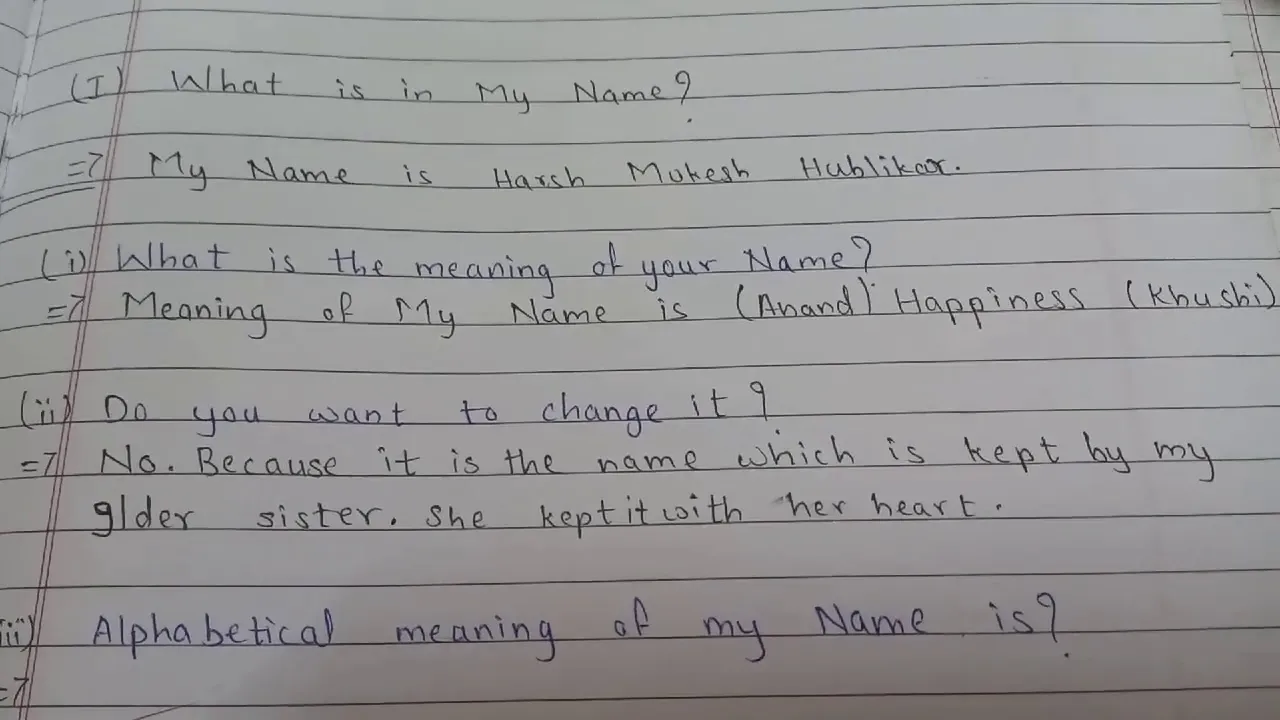 (I) What is in My Name?
=> My Name is Harsh Mukesh Hublikar.
(i) What is the meaning of your Name?
=> Meaning of My Name is (Anand) Happiness (Khushi)
(ii) Do you want to change it?
=> No. Because it is the name which is kept by my
elder sister. She kept it with her heart.
iii) Alphabetical meaning of my Name is?
=>